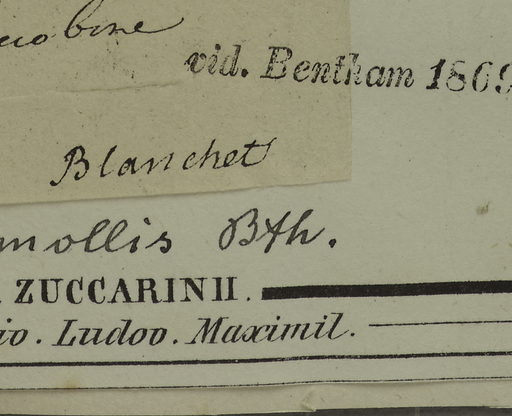 vid. Bentham 1869
Blanchet
mollis Bth.
ZUCCARINII.
io. Ludov. Maximil.